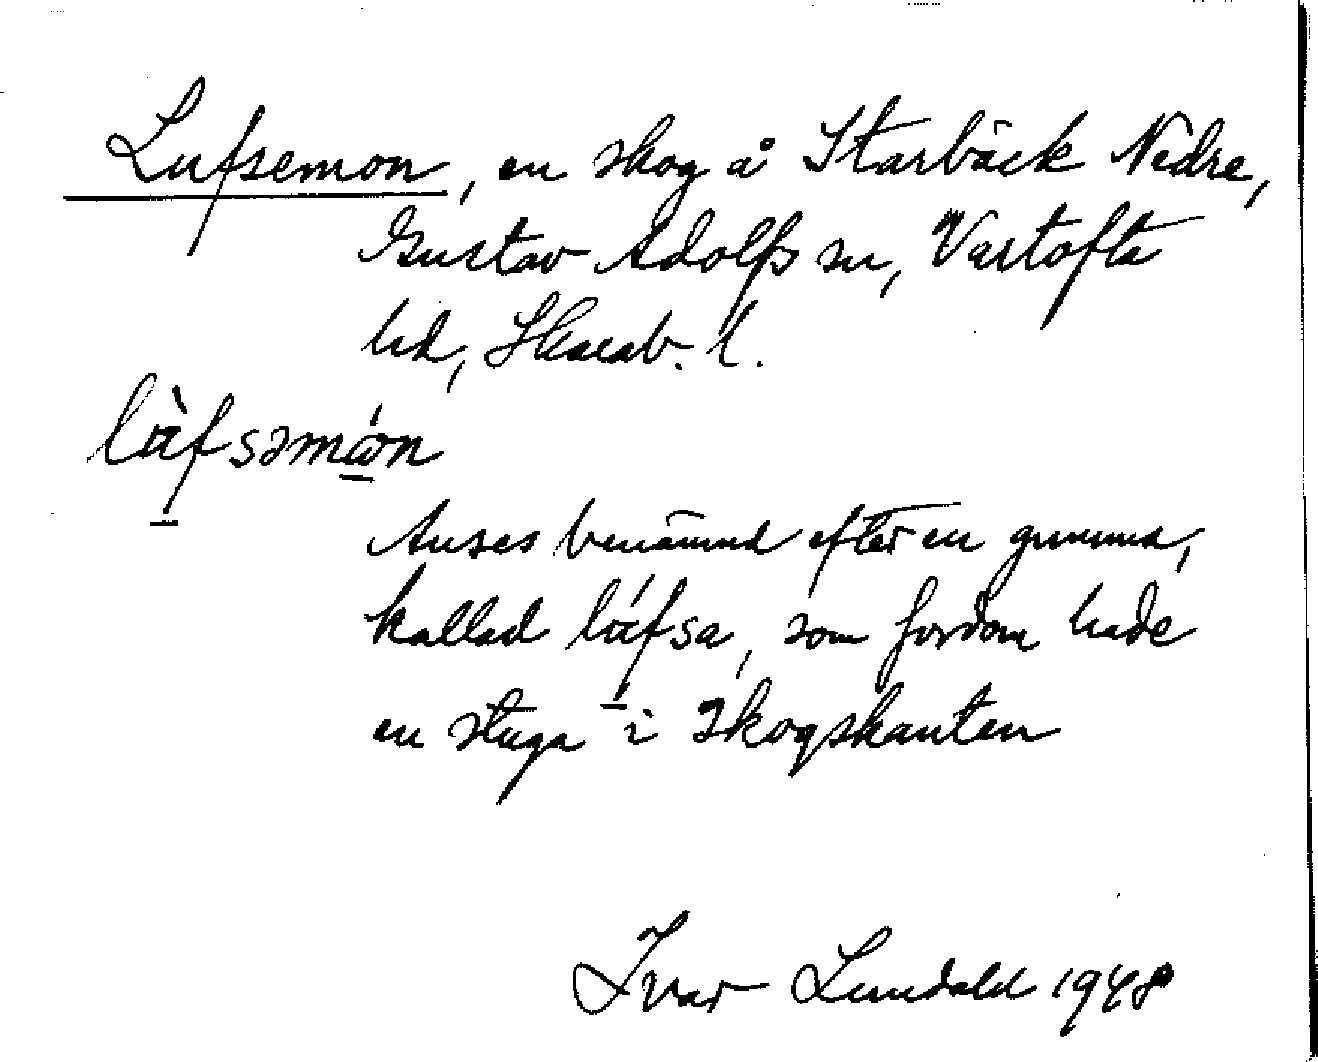 Lufsemon, en skog å Starbäck Nedre,
Gustav Adolfs sn, Vartofta
hd, Skarab. l.
Anses benämnd efter en gumma,
kallad lùfsa, som fordom hade
en stuga i skogskanten
Ivar Lundahl 1948